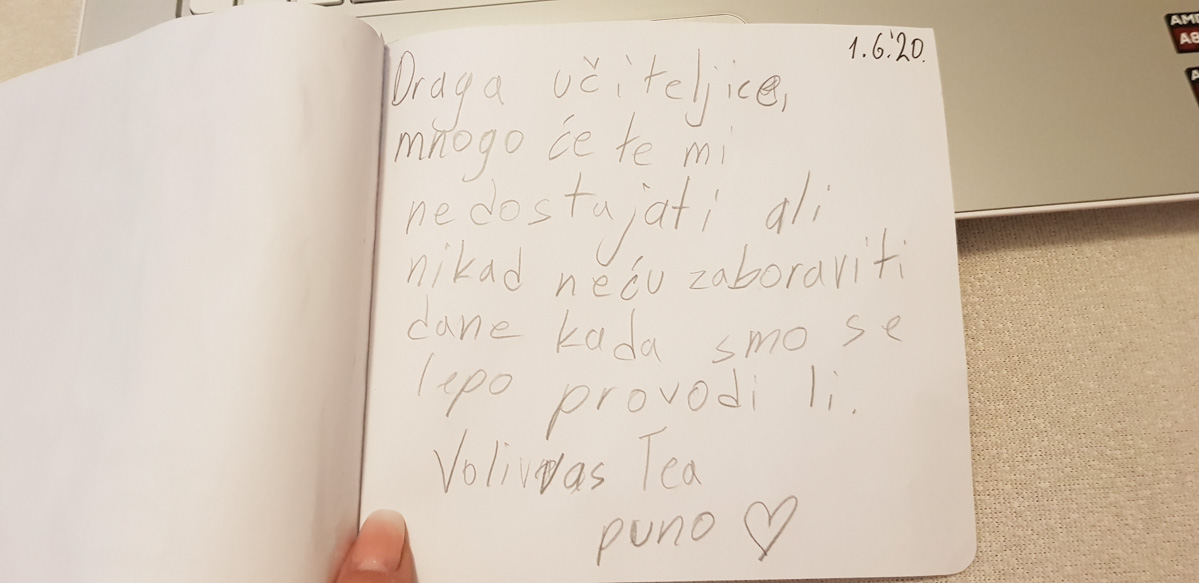 1.6.'20.
Draga učiteljice,
mnogo će te mi
nedostajati ali
nikad neću zaboraviti
dane kada smo se
lepo provodi li.
Voli vas Tea
puno ♡
AM
A8